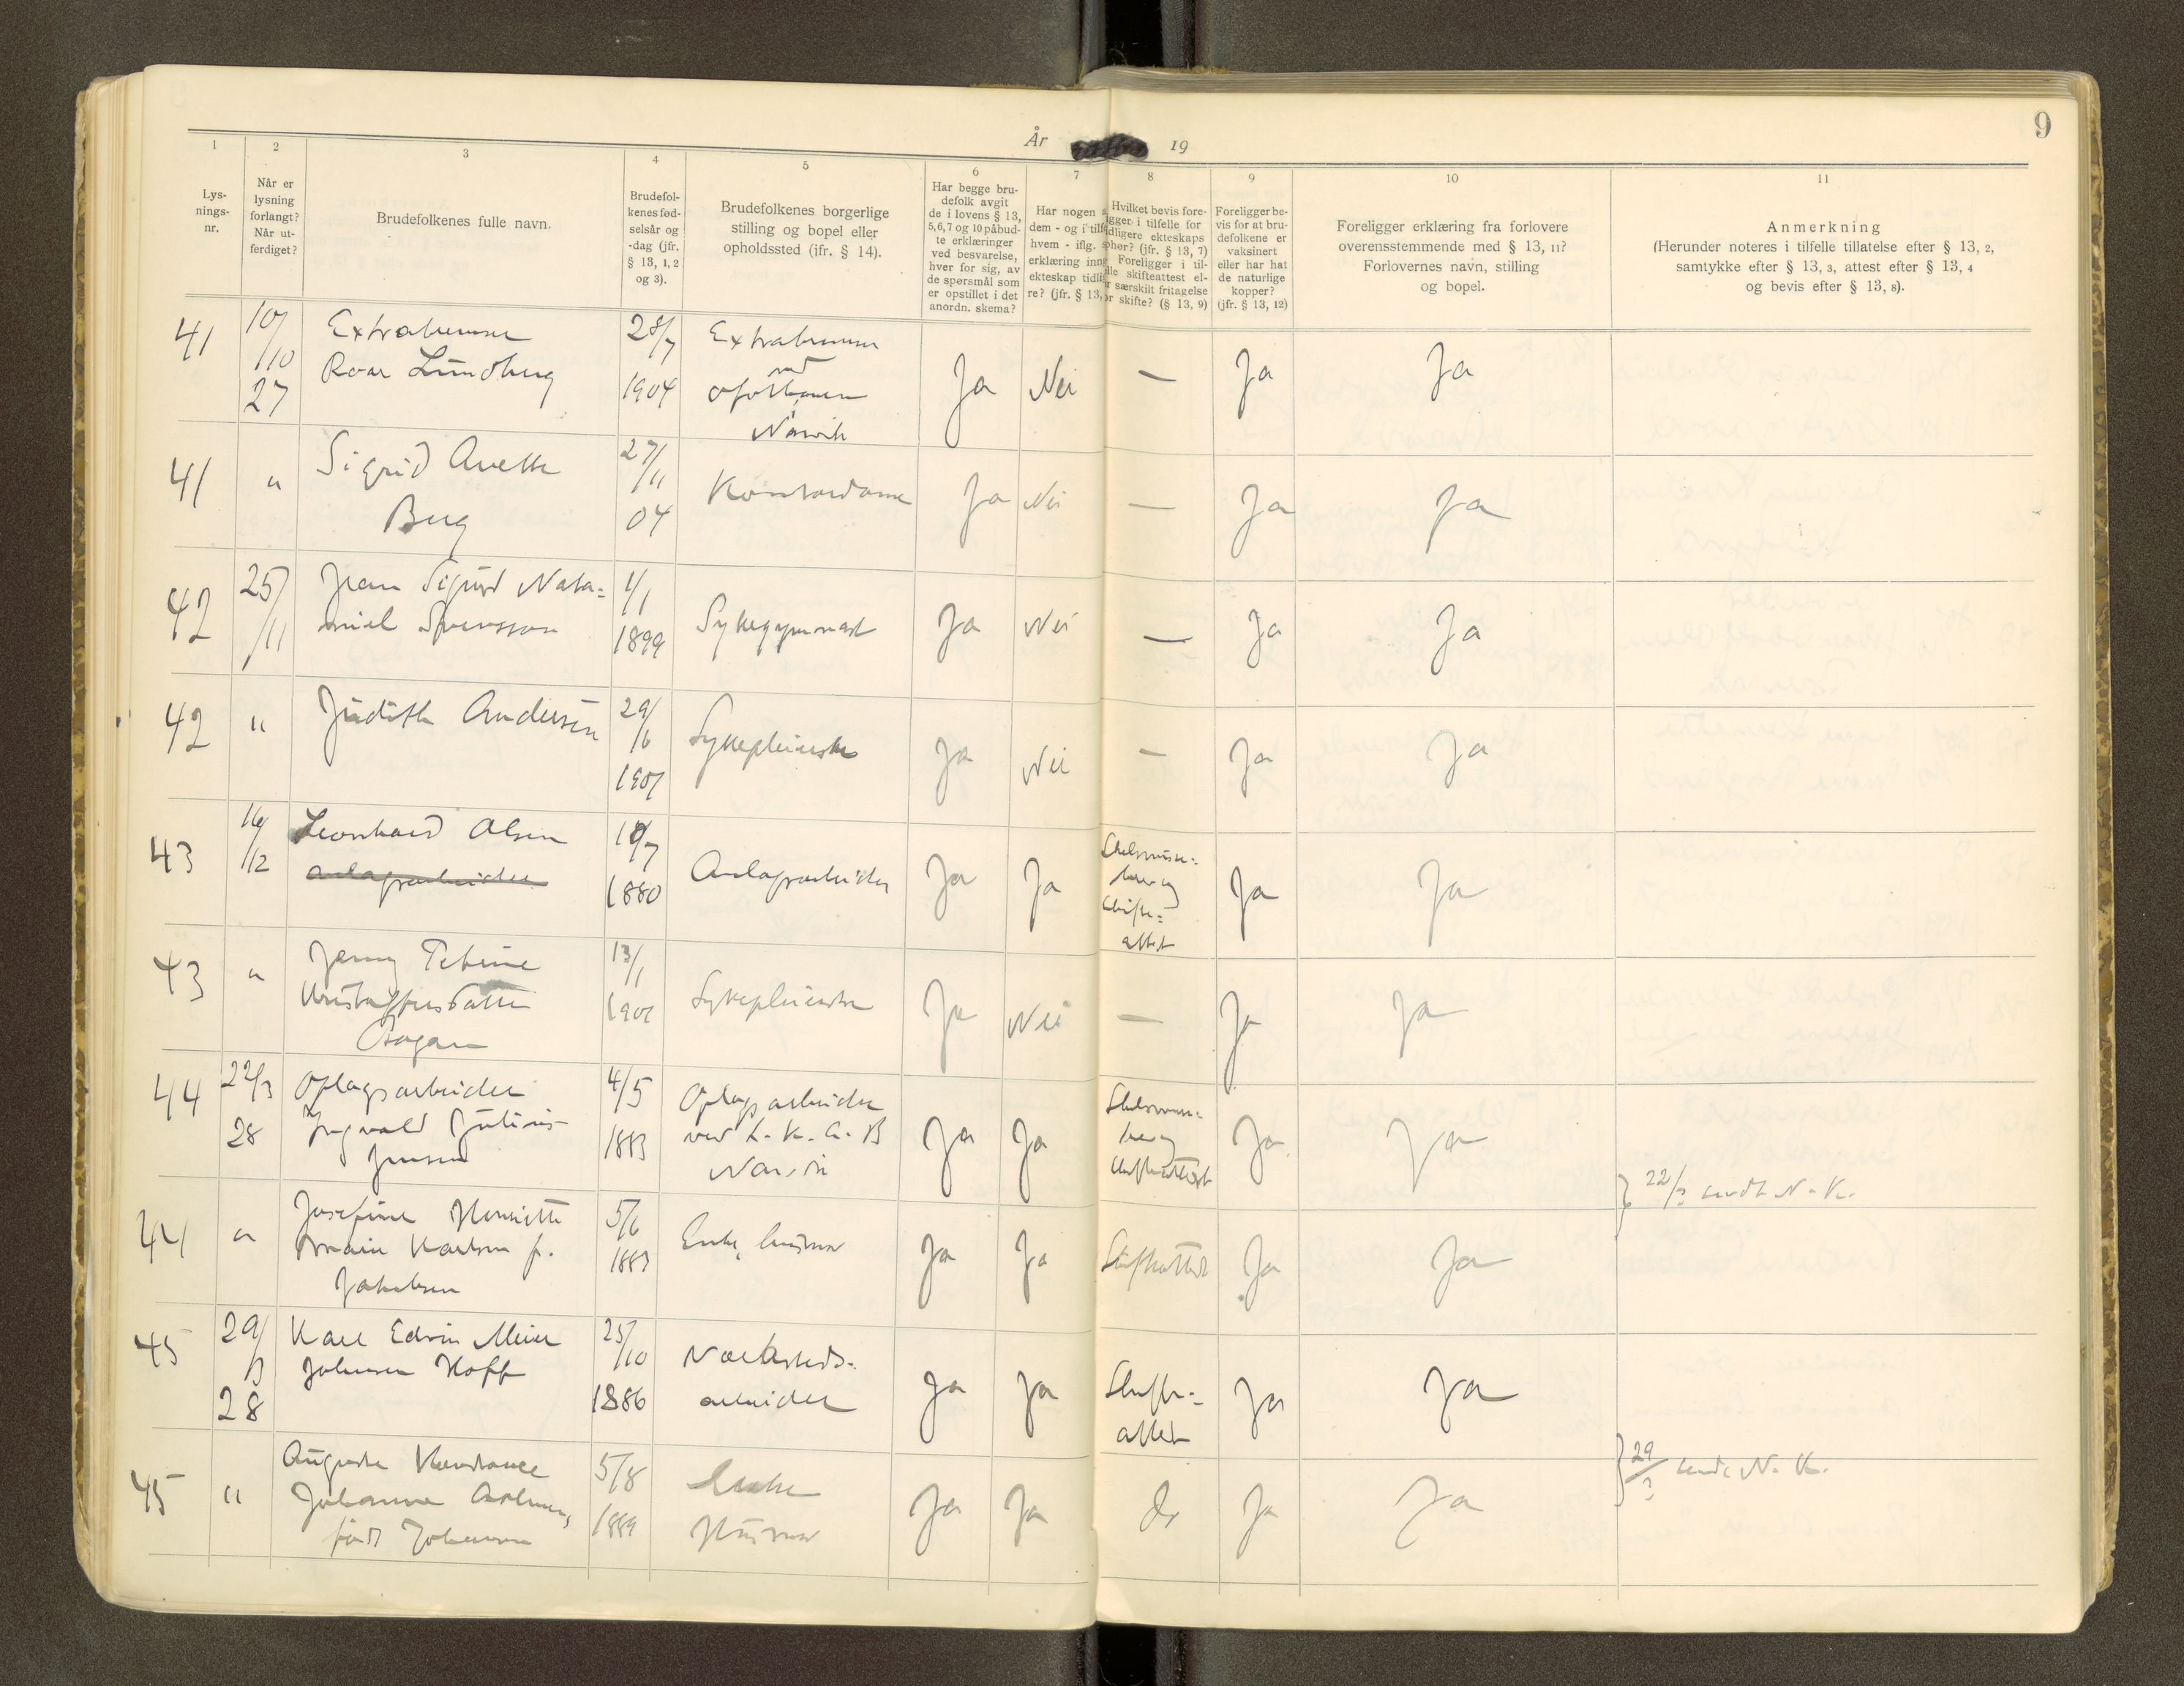 9
År 19
1 2 3 4 5 6 7 8 9 10 11
Lys-
nings-
nr.
Når er
lysning
forlangt?
Når ut-
ferdiget?
Brudefolkenes fulle navn.
Brudefol-
kenes fød-
selsår og
-dag (jfr.
§ 13, 1, 2
og 3).
Brudefolkenes borgerlige
stilling og bopel eller
opholdssted (ifr. § 14).
Har begge bru-
defolk avgit
de i lovens § 13,
5, 6, 7 og 10 påbud-
te erklæringer
ved besvarelse,
hver for sig, av
de spørsmål som
er opstillet i det
anordn. skema?
Har nogen
dem - og i tilf
hvem - iflg.
erklæring inng
ekteskap tidli
re? (jfr. § 13,
Hvilket bevis fore-
igger i tilfelle for
idligere ekteskaps
ophør? (jfr. § 13, 7)
Foreligger i til-
elle skifteattest el-
r særskilt fritagelse
or skifte? (§ 13, 9)
Foreligger be-
vis for at bru-
defolkene er
vaksinert
eller har hat
de naturlige
kopper?
(jfr. § 13, 12)
Foreligger erklæring fra forlovere
overensstemmende med § 13, 11?
Forlovernes navn, stilling
og bopel.
Anmerkning
(Herunder noteres i tilfelle tillatelse efter § 13, 2,
samtykke efter § 13, 3, attest efter § 13, 4
og bevis efter § 13, 8).
41 10/10 27
Roar Lundberg
28/7 1904
Narvik
Ja Nei — Ja Ja
41 "
Sigrid Anette
Berg
27/11 04
Kontordame
Ja Nei — Ja Ja
42 25/11
Sigurd Nata-
niel Svensson
1/1 1899
Sykegymnast
Ja Nei — Ja Ja
42 "
Judith Andersen
29/6 1907
Sykepleierske
Ja Nei — Ja Ja
43 16/12
Leonhard Olsen
anlagsarbeider
1880
Anlagsarbeider
Ja Ja
Skifte-
attest
Ja Ja
43 "
Jenny Petrine
Kristoffersdatter
13/1
Sykepleierske
Ja Nei — Ja Ja
44 22/3 28
Oplagsarbeider
Ingvald Julius
Jensen
4/5 1883
Oplagsarbeider
ved L. K. A. B
Narvik
Ja Ja
Skifteattest
Ja Ja
22/3 sendt N. K.
44 "
Josefine Henriette
Marie Karlsen f.
Jakobsen
5/6 1883
Enke, husmor
Ja Ja Skifteattest Ja Ja
45 29/3 28
Karl Edvin Meier
Johnsen Hoff
25/10 1886
Verksteds-
arbeider
Ja Ja
Skifte-
attest
Ja Ja
29/3 sendt N. K.
45 "
Augusta Konstance
Johanna
født Johansen
5/8 1889
Enke
Husmor
Ja Ja do Ja Ja